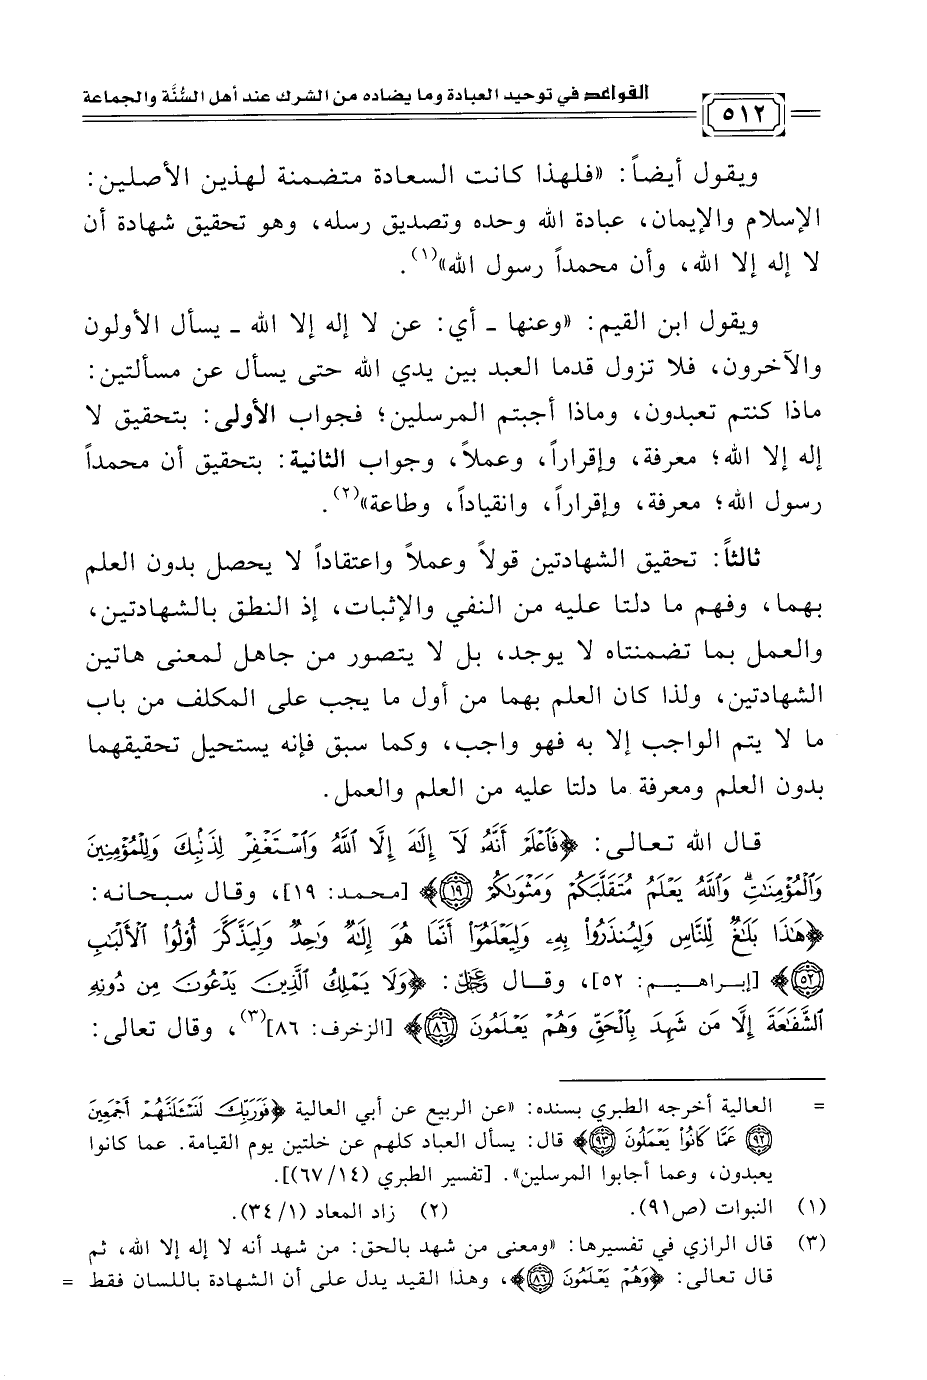 القواعد في توحيد العبادة وما يضاده من الشرك عند أهل السُّنَّة والجماعة
٥١٢
ويقول أيضاً: «فلهذا كانت السعادة متضمنة لهذين الأصلين:
الإسلام والإيمان، عبادة الله وحده وتصديق رسله، وهو تحقيق شهادة أن
لا إله إلا الله، وأن محمداً رسول الله»(١).
ويقول ابن القيم: «وعنها ـ أي: عن لا إله إلا الله ـ يسأل الأولون
والآخرون، فلا تزول قدما العبد بين يدي الله حتى يسأل عن مسألتين:
ماذا كنتم تعبدون، وماذا أجبتم المرسلين؛ فجواب الأولى: بتحقيق لا
إله إلا الله؛ معرفة، وإقراراً، وعملاً، وجواب الثانية: بتحقيق أن محمداً
رسول الله؛ معرفة، وإقراراً، وانقياداً، وطاعة»(٢).
ثالثاً: تحقيق الشهادتين قولاً وعملاً واعتقاداً لا يحصل بدون العلم
بهما، وفهم ما دلتا عليه من النفي والإثبات، إذ النطق بالشهادتين،
والعمل بما تضمنتاه لا يوجد، بل لا يتصور من جاهل لمعنى هاتين
الشهادتين، ولذا كان العلم بهما من أول ما يجب على المكلف من باب
ما لا يتم الواجب إلا به فهو واجب، وكما سبق فإنه يستحيل تحقيقهما
بدون العلم ومعرفة ما دلتا عليه من العلم والعمل.
قال الله تعالى: ﴿فَٱعْلَمْ أَنَّهُۥ لَآ إِلَٰهَ إِلَّا ٱللَّهُ وَٱسْتَغْفِرْ لِذَنۢبِكَ وَلِلْمُؤْمِنِينَ
وَٱلْمُؤْمِنَٰتِ ۗ وَٱللَّهُ يَعْلَمُ مُتَقَلَّبَكُمْ وَمَثْوَىٰكُمْ ١٩﴾ [محمد: ١٩]، وقال سبحانه:
﴿هَٰذَا بَلَٰغٌ لِّلنَّاسِ وَلِيُنذَرُوا۟ بِهِۦ وَلِيَعْلَمُوٓا۟ أَنَّمَا هُوَ إِلَٰهٌ وَٰحِدٌ وَلِيَذَّكَّرَ أُو۟لُوا۟ ٱلْأَلْبَٰبِ
٥٢﴾ [إبراهيم: ٥٢]، وقال ﷻ: ﴿وَلَا يَمْلِكُ ٱلَّذِينَ يَدْعُونَ مِن دُونِهِ
ٱلشَّفَٰعَةَ إِلَّا مَن شَهِدَ بِٱلْحَقِّ وَهُمْ يَعْلَمُونَ ٨٦﴾ [الزخرف: ٨٦](٣)، وقال تعالى:
= العالية أخرجه الطبري بسنده: «عن الربيع عن أبي العالية ﴿فَوَرَبِّكَ لَنَسْـَٔلَنَّهُمْ أَجْمَعِينَ
٩٢ عَمَّا كَانُوا۟ يَعْمَلُونَ ٩٣﴾ قال: يسأل العباد كلهم عن خلتين يوم القيامة. عما كانوا
يعبدون، وعما أجابوا المرسلين». [تفسير الطبري (٦٧/١٤)].
(١) النبوات (ص٩١). (٢) زاد المعاد (٣٤/١).
(٣) قال الرازي في تفسيرها: «ومعنى من شهد بالحق: من شهد أنه لا إله إلا الله، ثم
قال تعالى: ﴿وَهُمْ يَعْلَمُونَ ٨٦﴾، وهذا القيد يدل على أن الشهادة باللسان فقط =